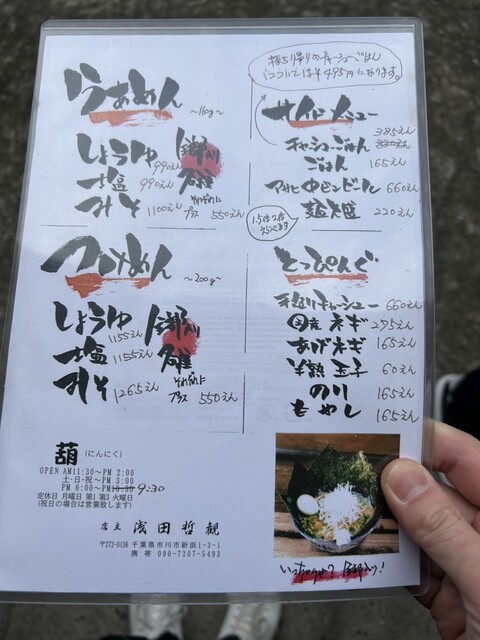 らぁめん ～160g～
しょうゆ 990えん
塩 990えん
みそ 1100えん
それぞれに
プラス 550えん
つけめん ～200g～
しょうゆ 1155えん
塩 1155えん
みそ 1265えん
それぞれに
プラス 550えん
葫 (にんにく)
OPEN AM11:30～PM 2:00
土・日・祝～PM 3:00
PM 6:00～PM10:30 9:30
定休日 月曜日 第1 第3 火曜日
(祝日の場合は営業致します)
店主 浅田哲観
〒272-0136 千葉県市川市新浜1-3-1
携帯 090-7207-5493
持ち帰りのチャーシューごはん
については￥495円になります。
サイドメニュー
385えん
チャーシューごはん 330えん
ごはん 165えん
アサヒ中ビンビール 660えん
麺大盛 220えん
1.5倍 2倍
とっぴんぐ
手造りチャーシュー 660えん
国産ネギ 275えん
あげネギ 165えん
半熟玉子 60えん
のり 165えん
もやし 165えん